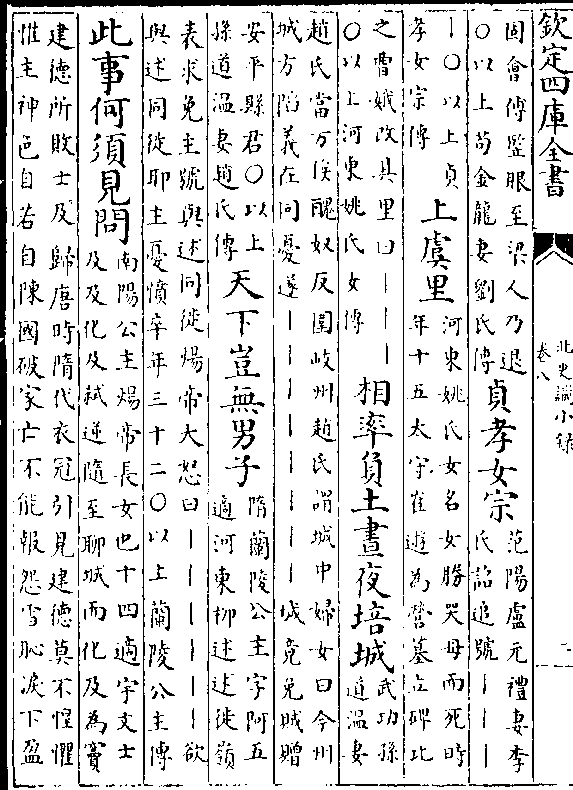 欽定四庫全書
北史識小錄
卷八
固會傅豎眼至梁人乃退
〇以上苟金龍妻劉氏傳
貞孝女宗
范陽盧元禮妻李
氏詔追號丨丨丨
丨〇以上貞
孝女宗傳
上虞里
河東姚氏女名女勝哭母而死時
年十五太守崔遊為營墓立碑比
之曹娥改其里曰丨丨丨
〇以上河東姚氏女傳
相率負土晝夜培城
武功孫
道温妻
趙氏當万俟醜奴反圍岐州趙氏謂城中婦女曰今州
城方陷義在同憂遂丨丨丨丨丨丨丨丨城竟免賊贈
安平縣君〇以上
孫道温妻趙氏傳
天下豈無男子
隋蘭陵公主字阿五
適河東柳述述徙嶺
表求免主號與述同徙煬帝大怒曰丨丨丨丨丨丨欲
與述同徙耶主憂憤卒年三十二〇以上蘭陵公主傳
此事何須見問
南陽公主煬帝長女也十四適宇文士
及及化及弒逆隨至聊城而化及為竇
建德所敗士及歸唐時隋代衣冠引見建德莫不惶懼
惟主神色自若自陳國破家亡不能報怨雪恥淚下盈